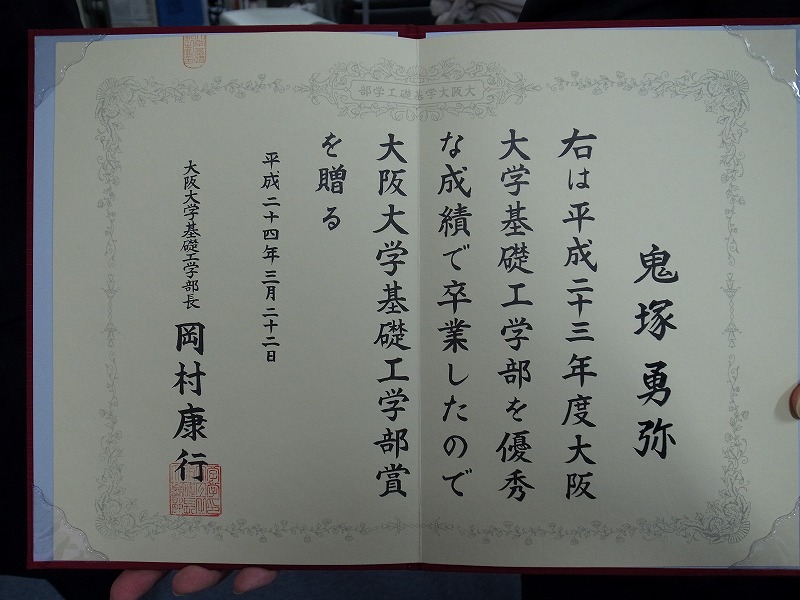 大阪大学基礎工学部
鬼塚勇弥
右は平成二十三年度大阪
大学基礎工学部を優秀
な成績で卒業したので
大阪大学基礎工学部賞
を贈る
平成二十四年三月二十二日
大阪大学基礎工学部長 岡村康行